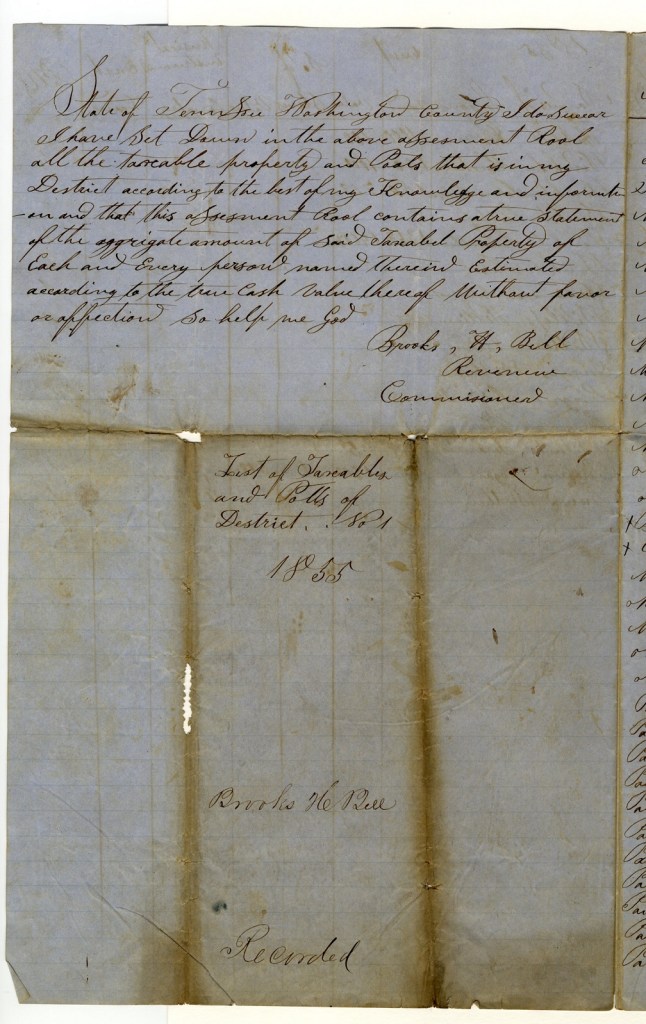 State of Tennssee Washington County I do swear
I have Set Down in the above assesment Rool
all the taxeable property and Pools that is in my
District according to the best of my Knowledge and informati
-on and that this assesment Rool contains a true Statement
of the aggrigate amount of said Taxabel Property of
Each and Every person named therein Estimated
according to the true Cash Value thereof Without favor
or affection So help me God
Brooks, H, Bell
Revenue
Commisioner
List of Taxables
and Polls of
District. . No 1
1855
Brooks H Bell
Recorded